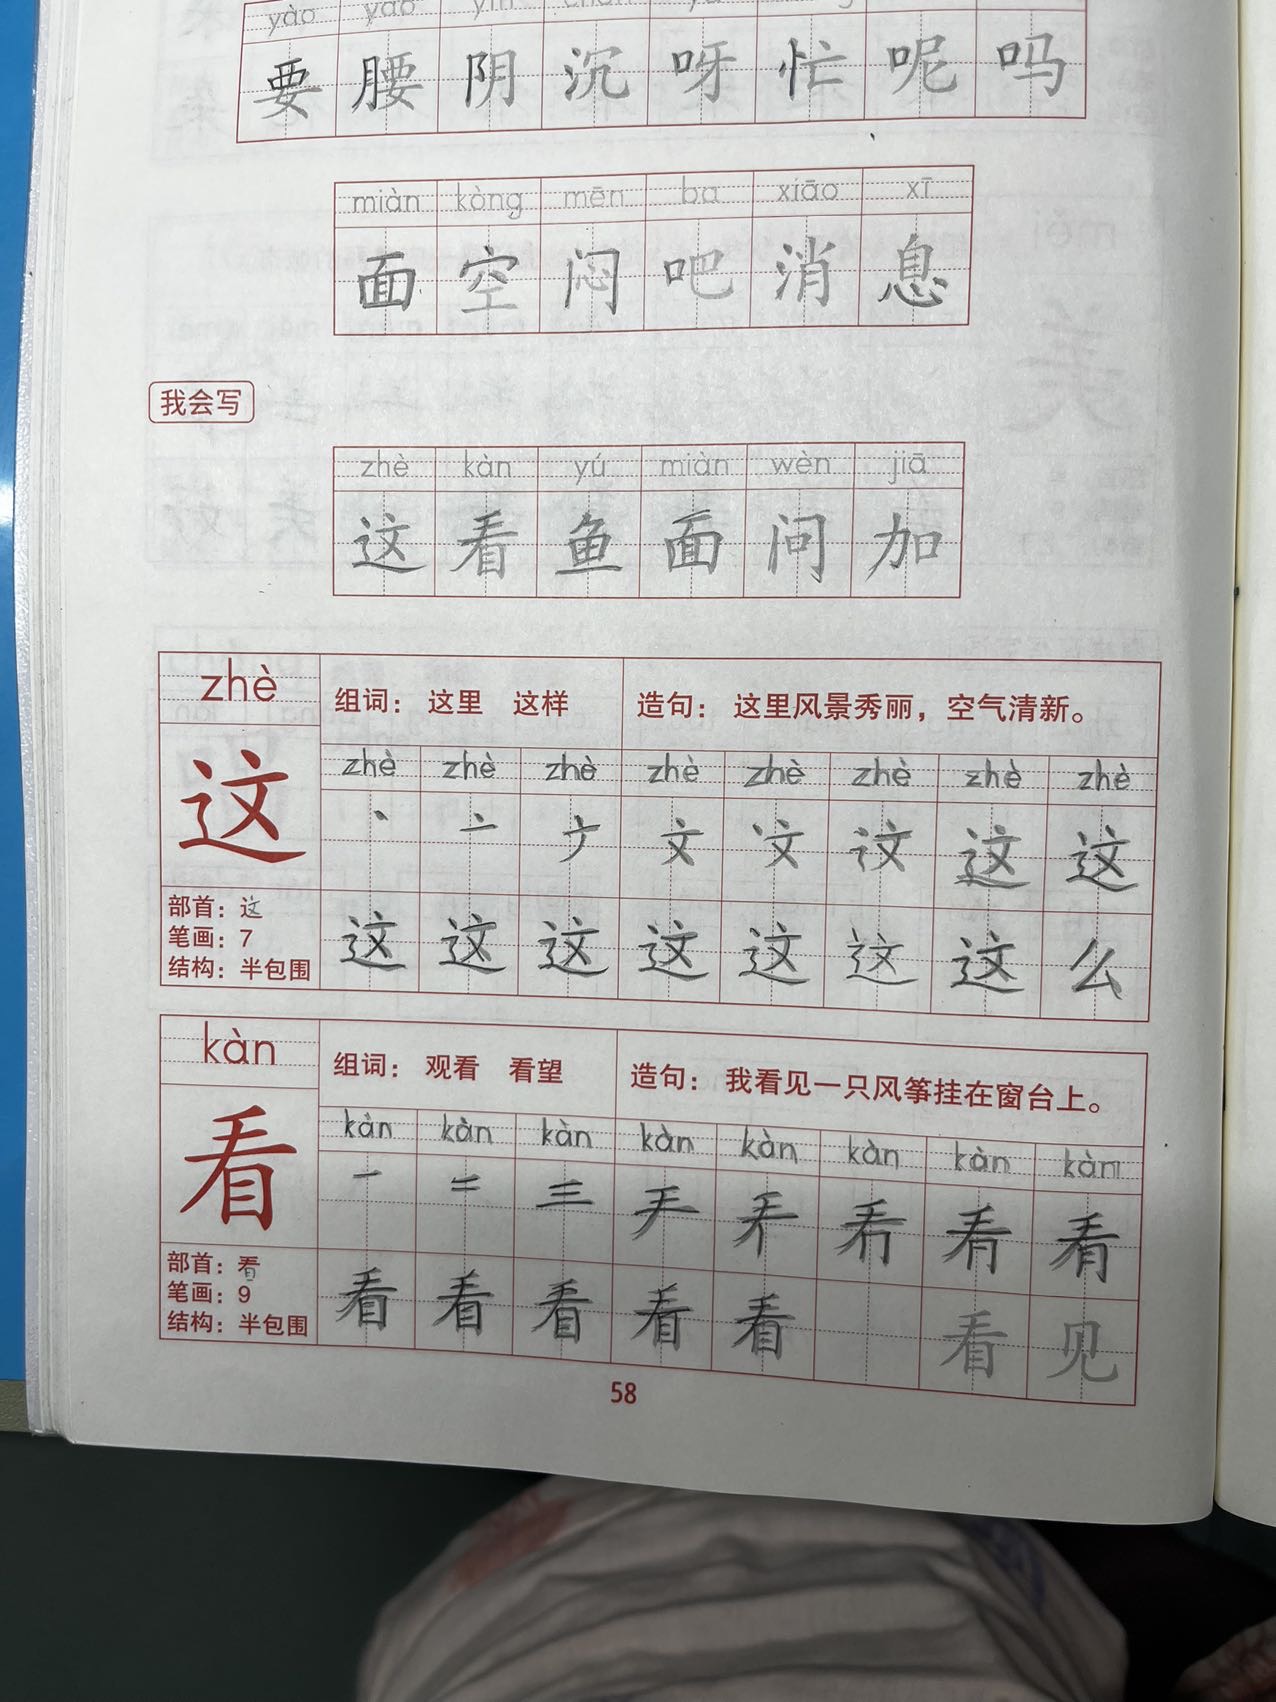 yào yāo yīn chén ya máng
要 腰 阴 沉 呀 忙 呢 吗
miàn kòng mēn ba xiāo xī
面 空 闷 吧 消 息
我会写
zhè kàn yú miàn wèn jiā
这 看 鱼 面 问 加
zhè
组词： 这里 这样
造句： 这里风景秀丽，空气清新。
zhè zhè zhè zhè zhè zhè zhè zhè
这
文 这 这
部首：这
笔画：7
结构：半包围
这 这 这 这 这 这 这 么
kàn
组词： 观看 看望
造句： 我看见一只风筝挂在窗台上。
kàn kàn kàn kàn kàn kàn kàn kàn
看
一 二 三
部首：看
笔画：9
结构：半包围
看 看 看 看 看 看 见
58